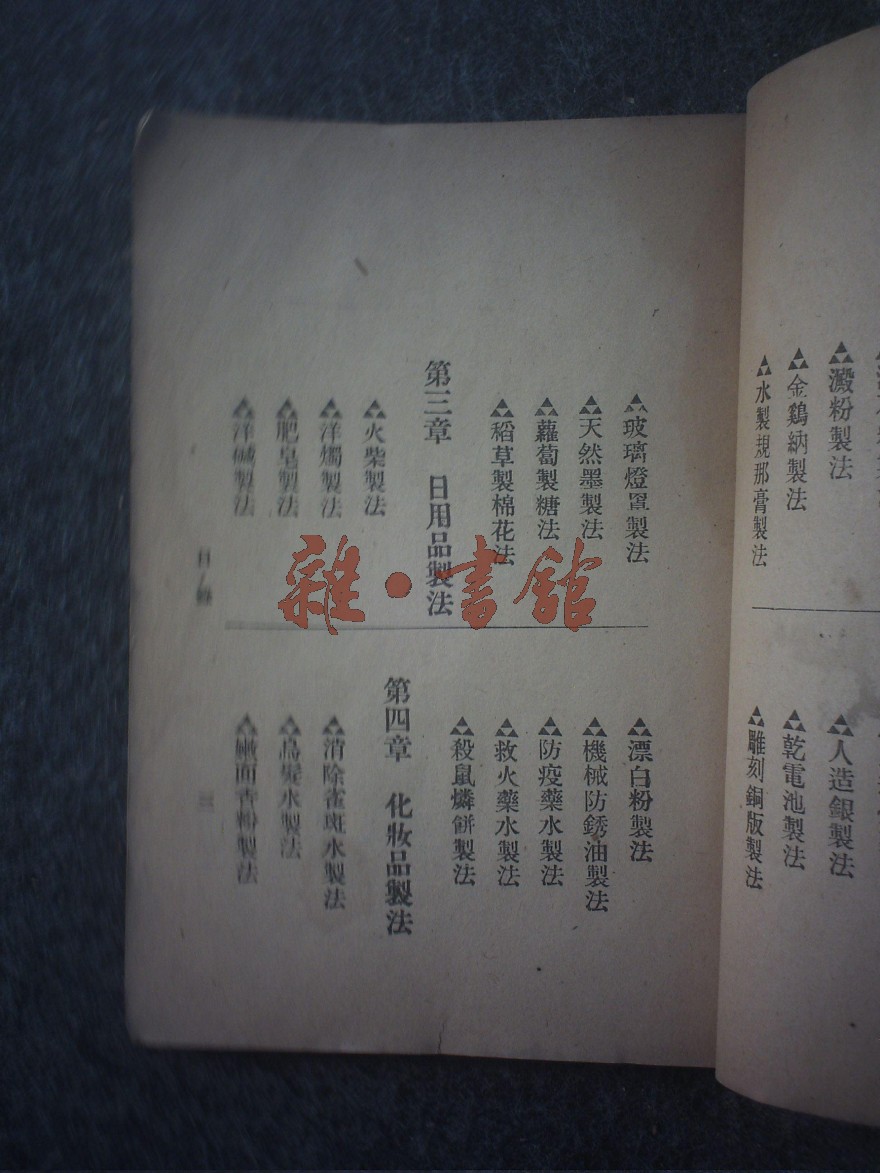 澱粉製法
金鷄納製法
水製規那膏製法
人造銀製法
乾電池製法
雕刻銅版製法
玻璃燈罩製法
天然墨製法
蘿蔔製糖法
稻草製棉花法
第三章 日用品製法
火柴製法
洋燭製法
肥皂製法
洋碱製法
漂白粉製法
機械防銹油製法
防疫藥水製法
救火藥水製法
殺鼠燐餅製法
第四章 化妝品製法
消除雀斑水製法
烏髮水製法
嫩面香粉製法
目錄
三
雜·書館